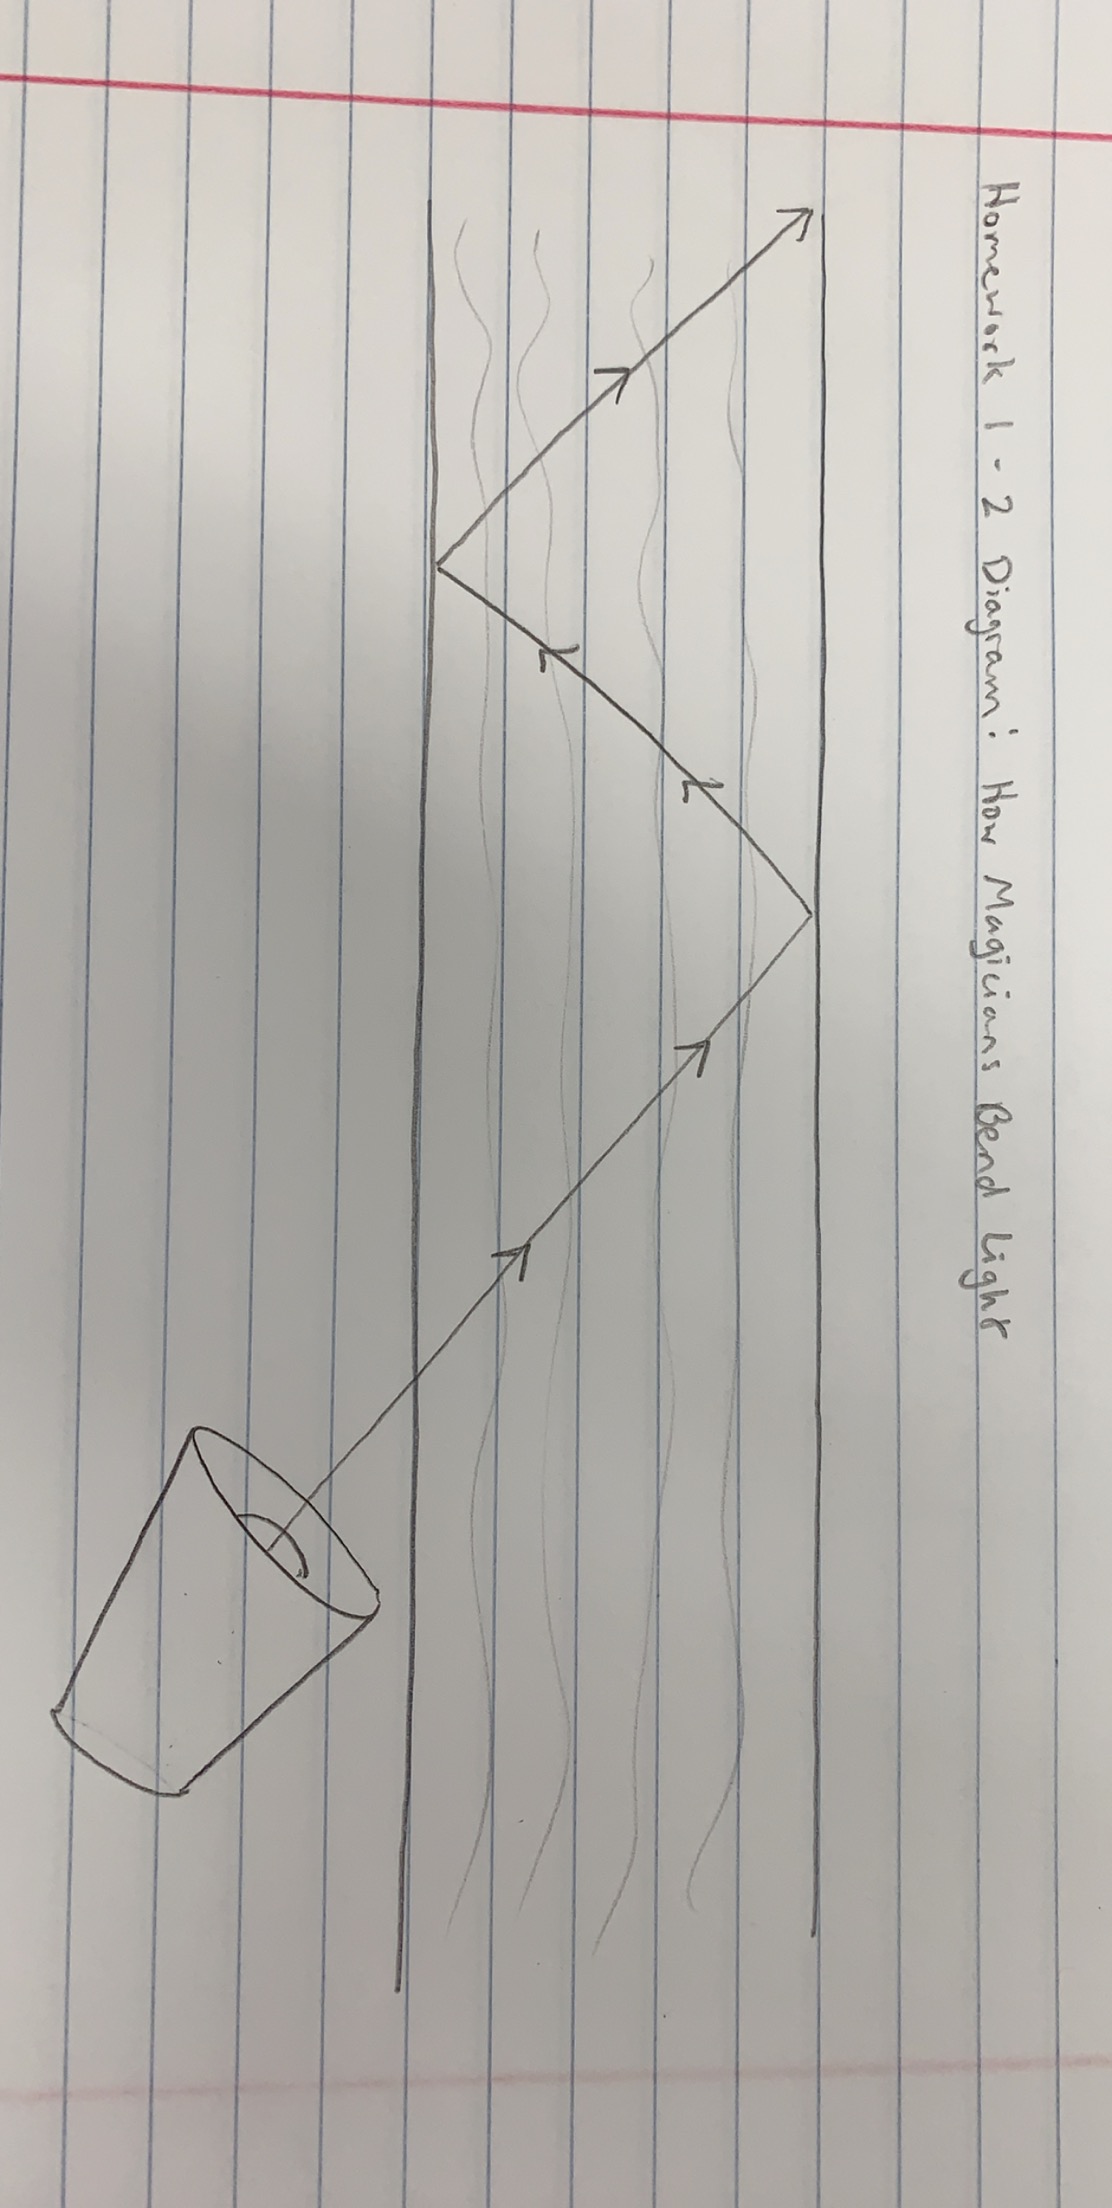 Homework 1 - 2 Diagram: How Magicians Bend Light